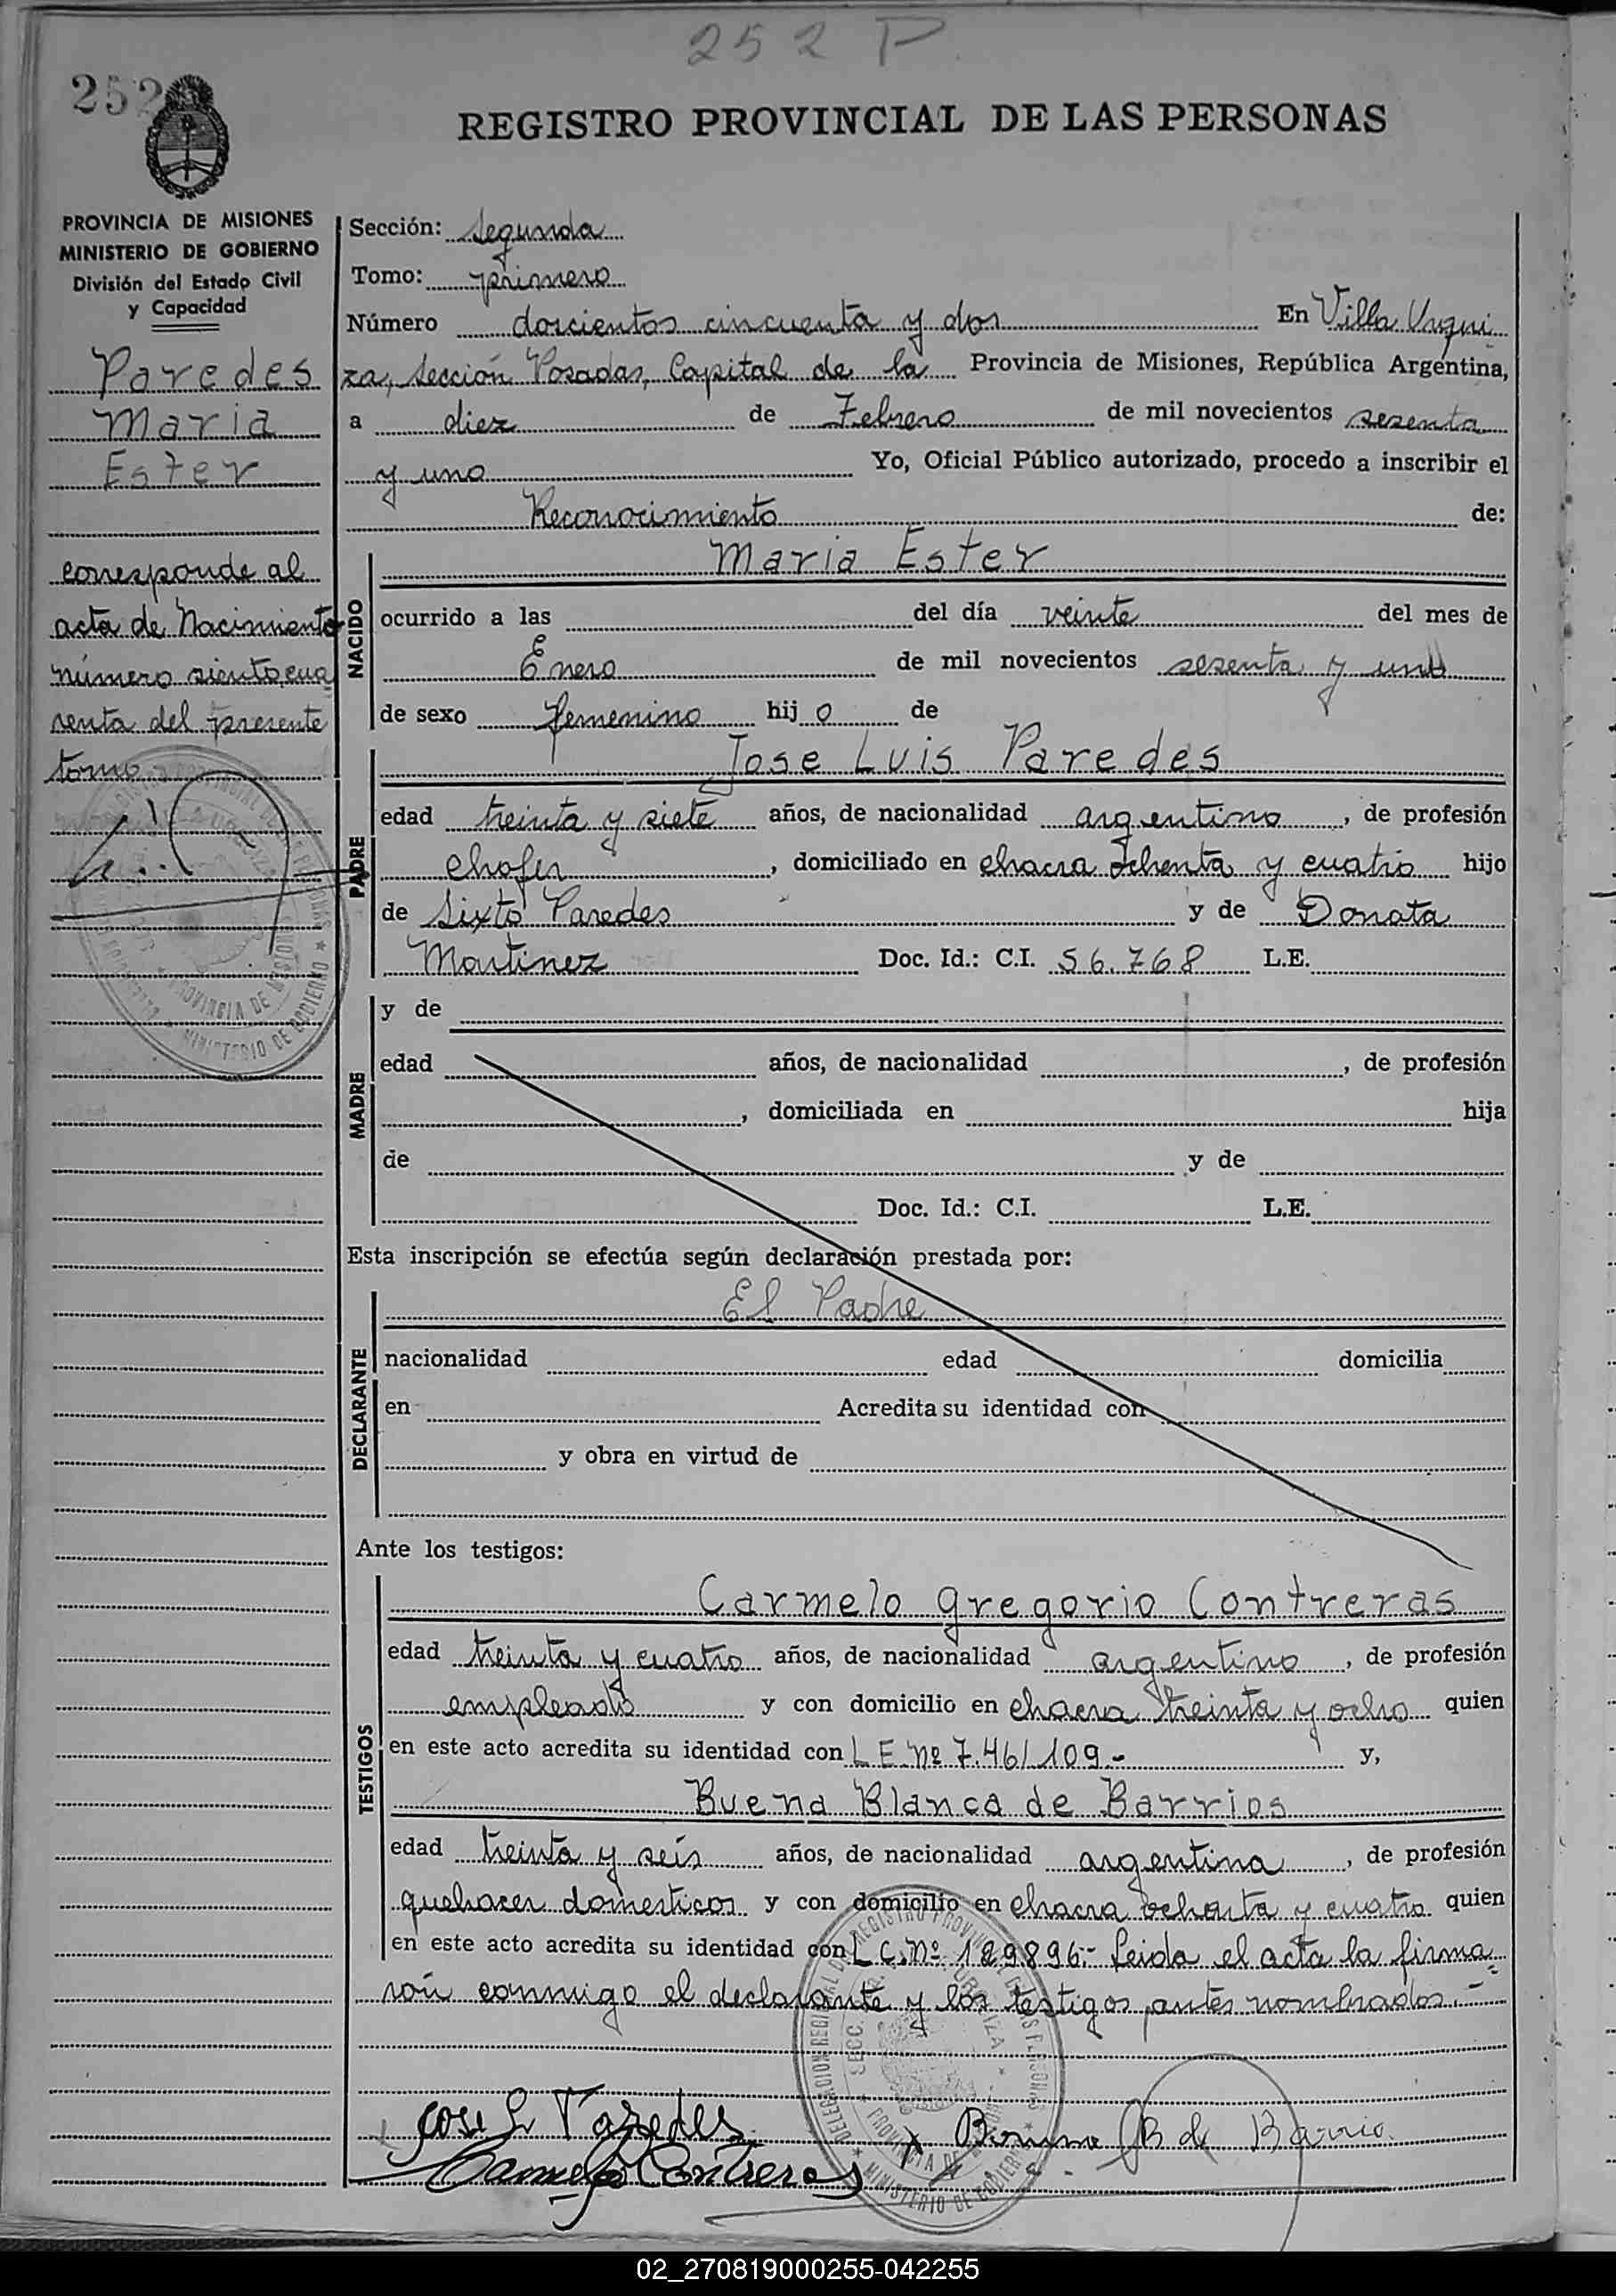 252 P
252
REGISTRO PROVINCIAL DE LAS PERSONAS
PROVINCIA DE MISIONES
MINISTERIO DE GOBIERNO
División del Estado Civil
y Capacidad
Paredes
Maria
Ester
corresponde al
acta de Nacimiento
número siento cua
renta del presente
tomo
Sección: Segunda
Tomo: primero
Número doscientos cincuenta y dos En Villa Urqui
za, Sección Posadas, Capital de la Provincia de Misiones, República Argentina,
a diez de Febrero de mil novecientos sesenta
y uno Yo, Oficial Público autorizado, procedo a inscribir el
Reconocimiento de:
NACIDO
Maria Ester
ocurrido a las del día veinte del mes de
Enero de mil novecientos sesenta y uno
de sexo femenino hij o de
PADRE
Jose Luis Paredes
edad treinta y siete años, de nacionalidad argentino, de profesión
chofer, domiciliado en chacra ochenta y cuatro hijo
de Sixto Paredes y de Donata
Martinez Doc. Id.: C.I. 56.768 L.E.
MADRE
y de
edad años, de nacionalidad , de profesión
, domiciliada en hija
de y de
Doc. Id.: C.I. L.E.
Esta inscripción se efectúa según declaración prestada por:
DECLARANTE
El Padre
nacionalidad edad domicilia
en Acredita su identidad con
y obra en virtud de
Ante los testigos:
TESTIGOS
Carmelo Gregorio Contreras
edad treinta y cuatro años, de nacionalidad argentino, de profesión
empleado y con domicilio en chacra treinta y ocho quien
en este acto acredita su identidad con L E. Nº 7.461109.- y,
Buena Blanca de Barrios
edad treinta y seis años, de nacionalidad argentina, de profesión
quehacer domesticos y con domicilio en chacra ochenta y cuatro quien
en este acto acredita su identidad con L C. Nº 189896.- Leida el acta la firma
ron conmigo el declarante y los testigos antes nombrados.-
Jose L Paredes
B de Barrio
Carmelo Contreras
02_270819000255-042255